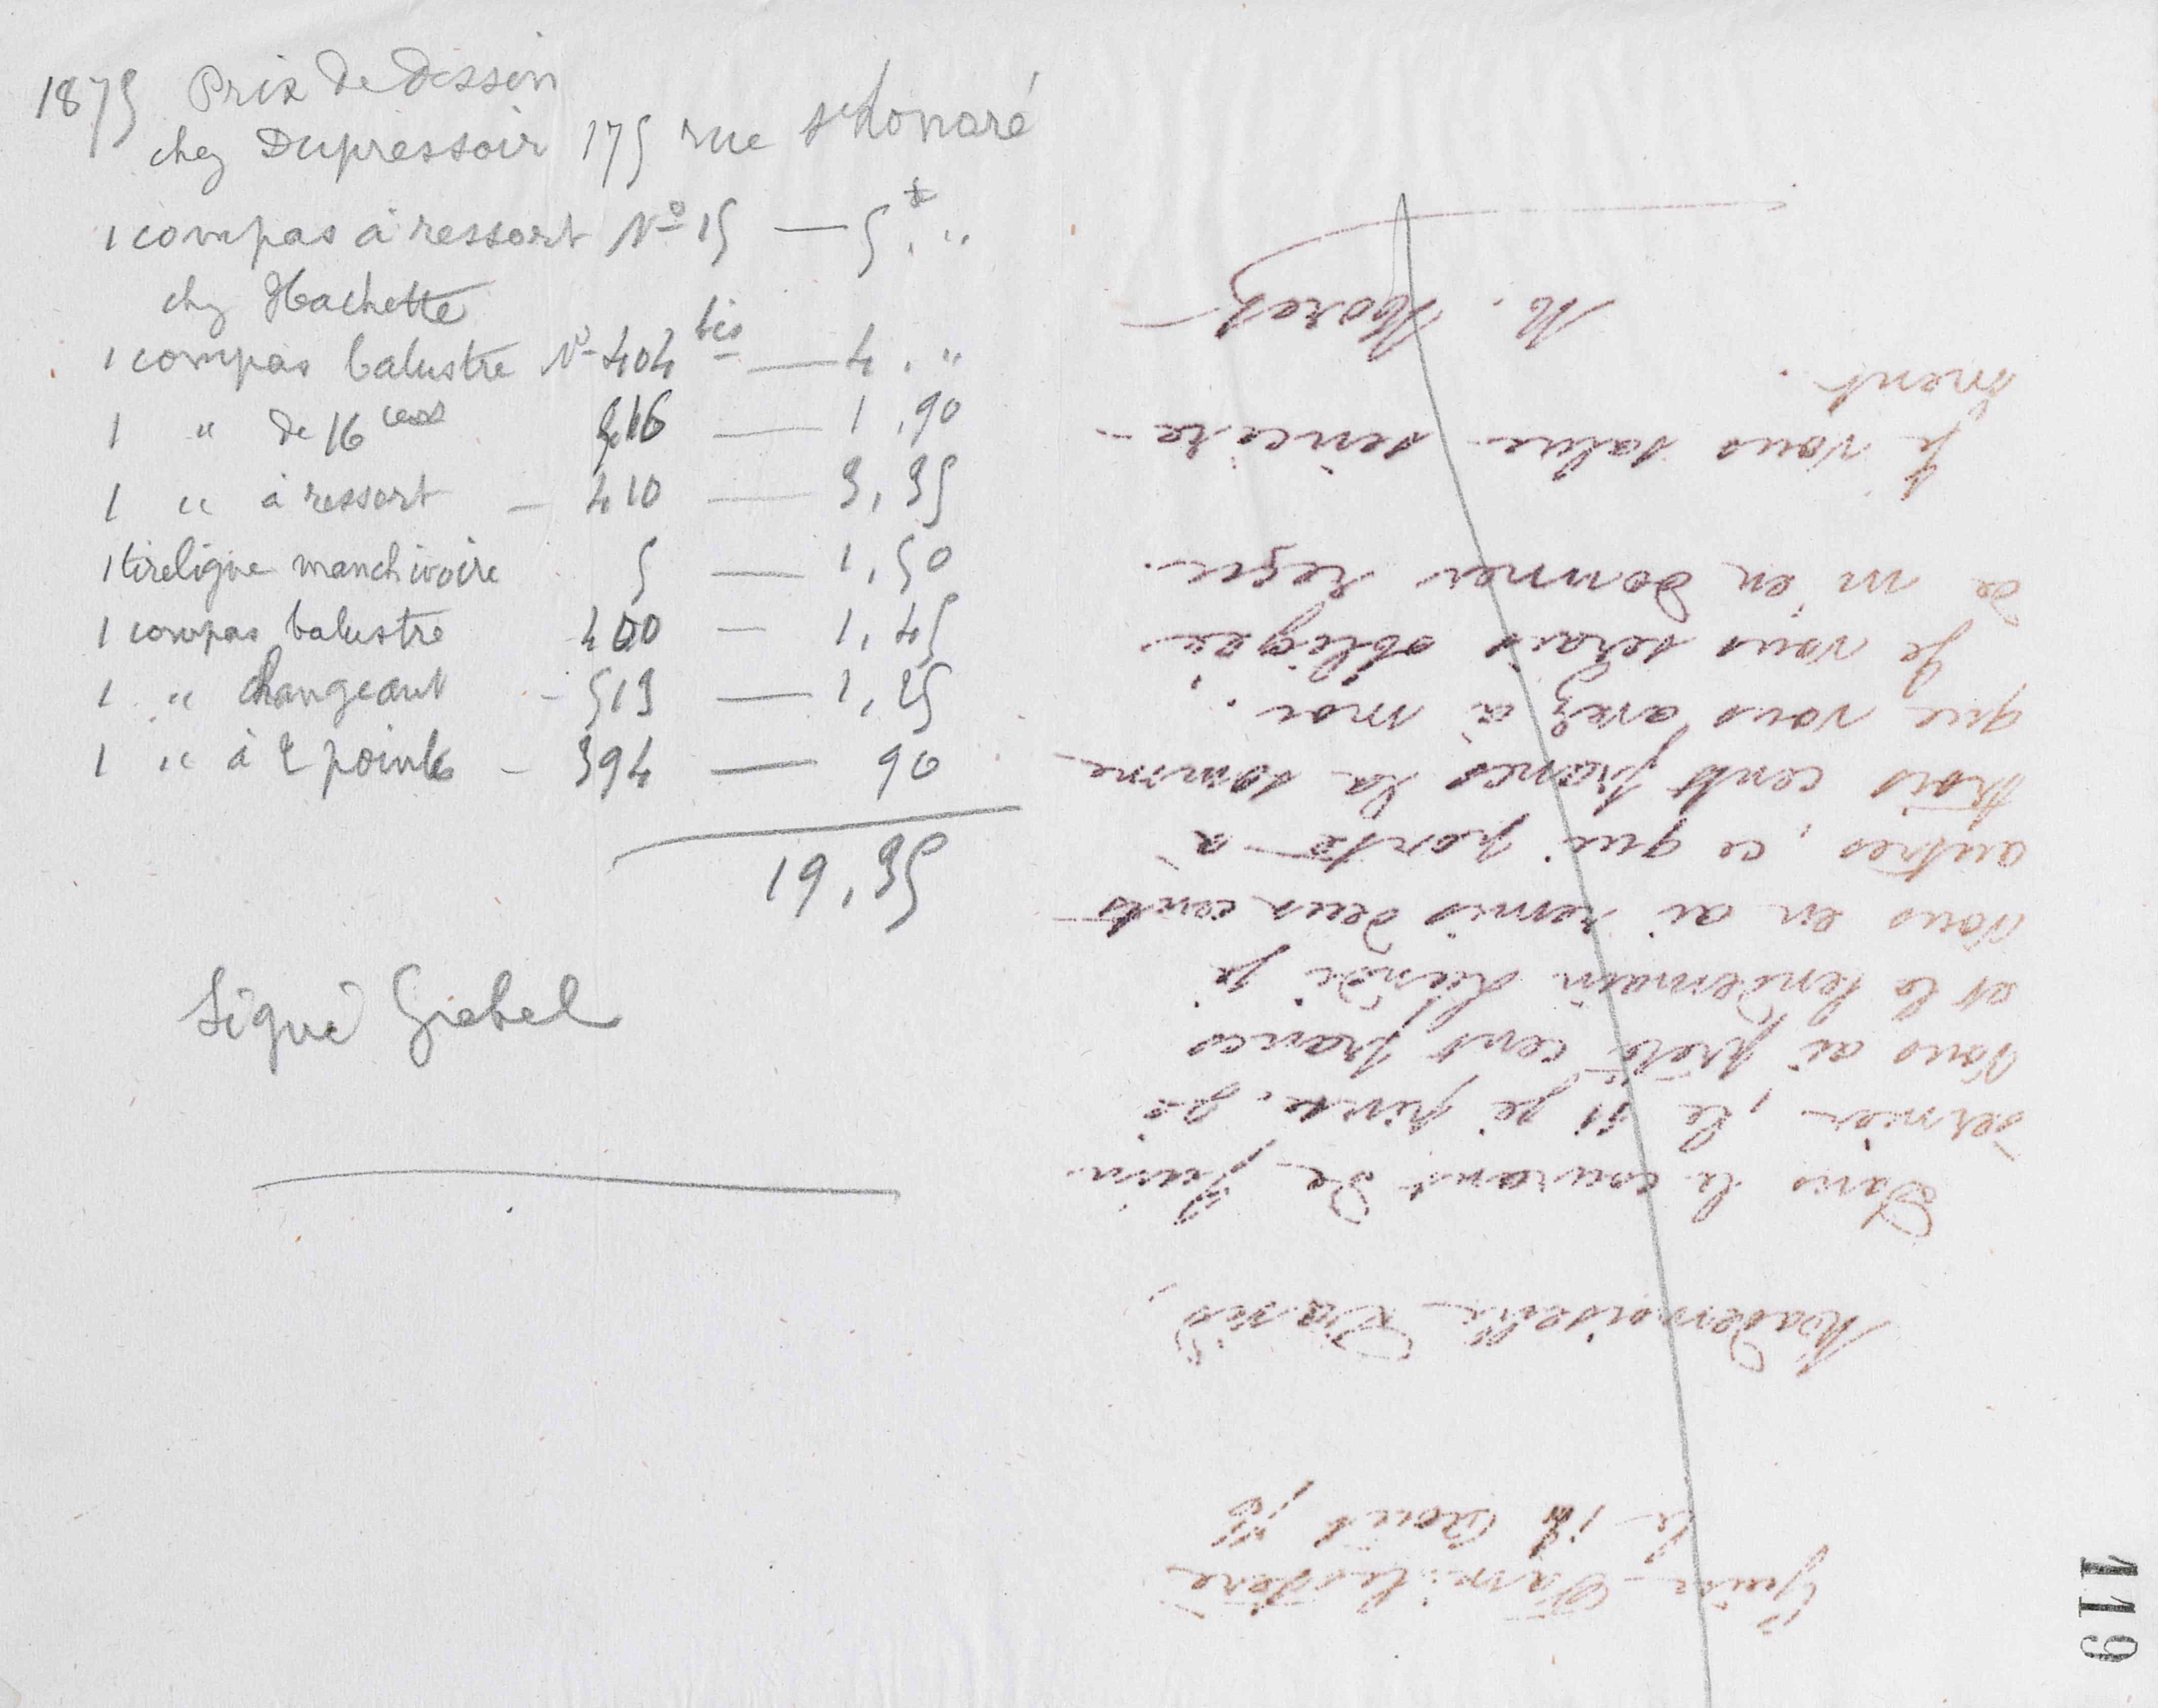 1875 Prix de Dessin
chez Dupressoir 175 rue St honoré
1 compas à ressort No 15 — 5f. "
chez Hachette
1 compas balustre No 404 bis — 4. "
1 " de 16 cent 416 — 1,90
1 " à ressort — 410 — 3,35
1 tireligne manch ivoire 5 — 1,50
1 compas balustre 400 — 1,45
1 " changeant — 513 — 1,25
1 " à 2 points — 394 — 90
19,35
Signé Grebel
Guise-Familistère
le 12 Août 75
Mademoiselle Davis,
Dans le courant de Juin
dernier, le
Vous ai prêté cent francs
et le lendemain Lundi je
vous en ai remis deux cents
autres, ce qui porte à
trois cents francs la somme
que vous avez à moi.
Je vous serais obligée
de m'en donner reçu.
Je vous salue sincère-
ment.
M. Moret
119